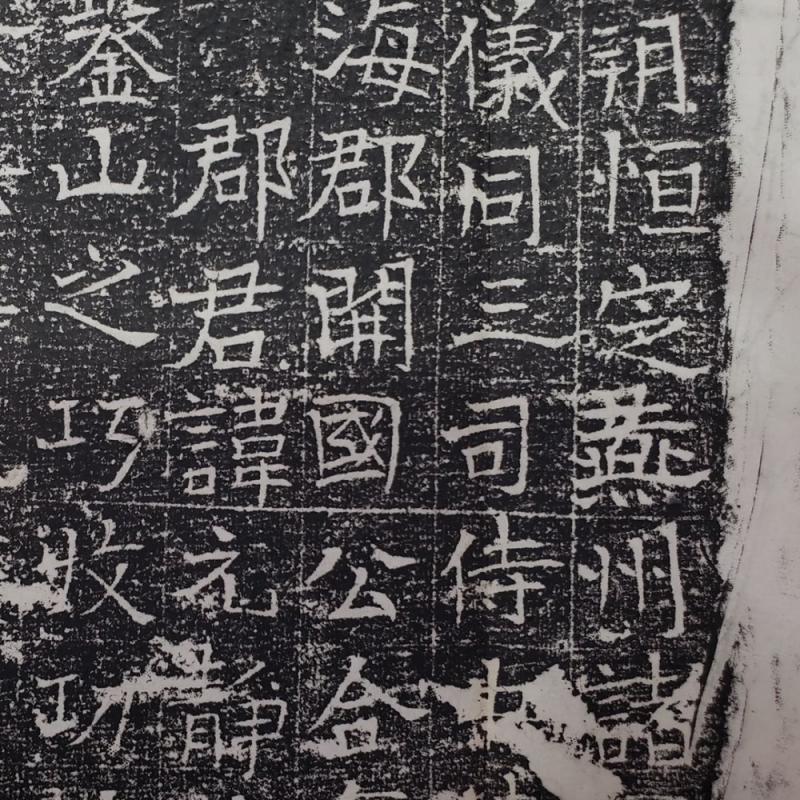 朔恒定燕州諸
儀同三司侍中
海郡開國公合
郡君諱元靜
鑿山之巧收功